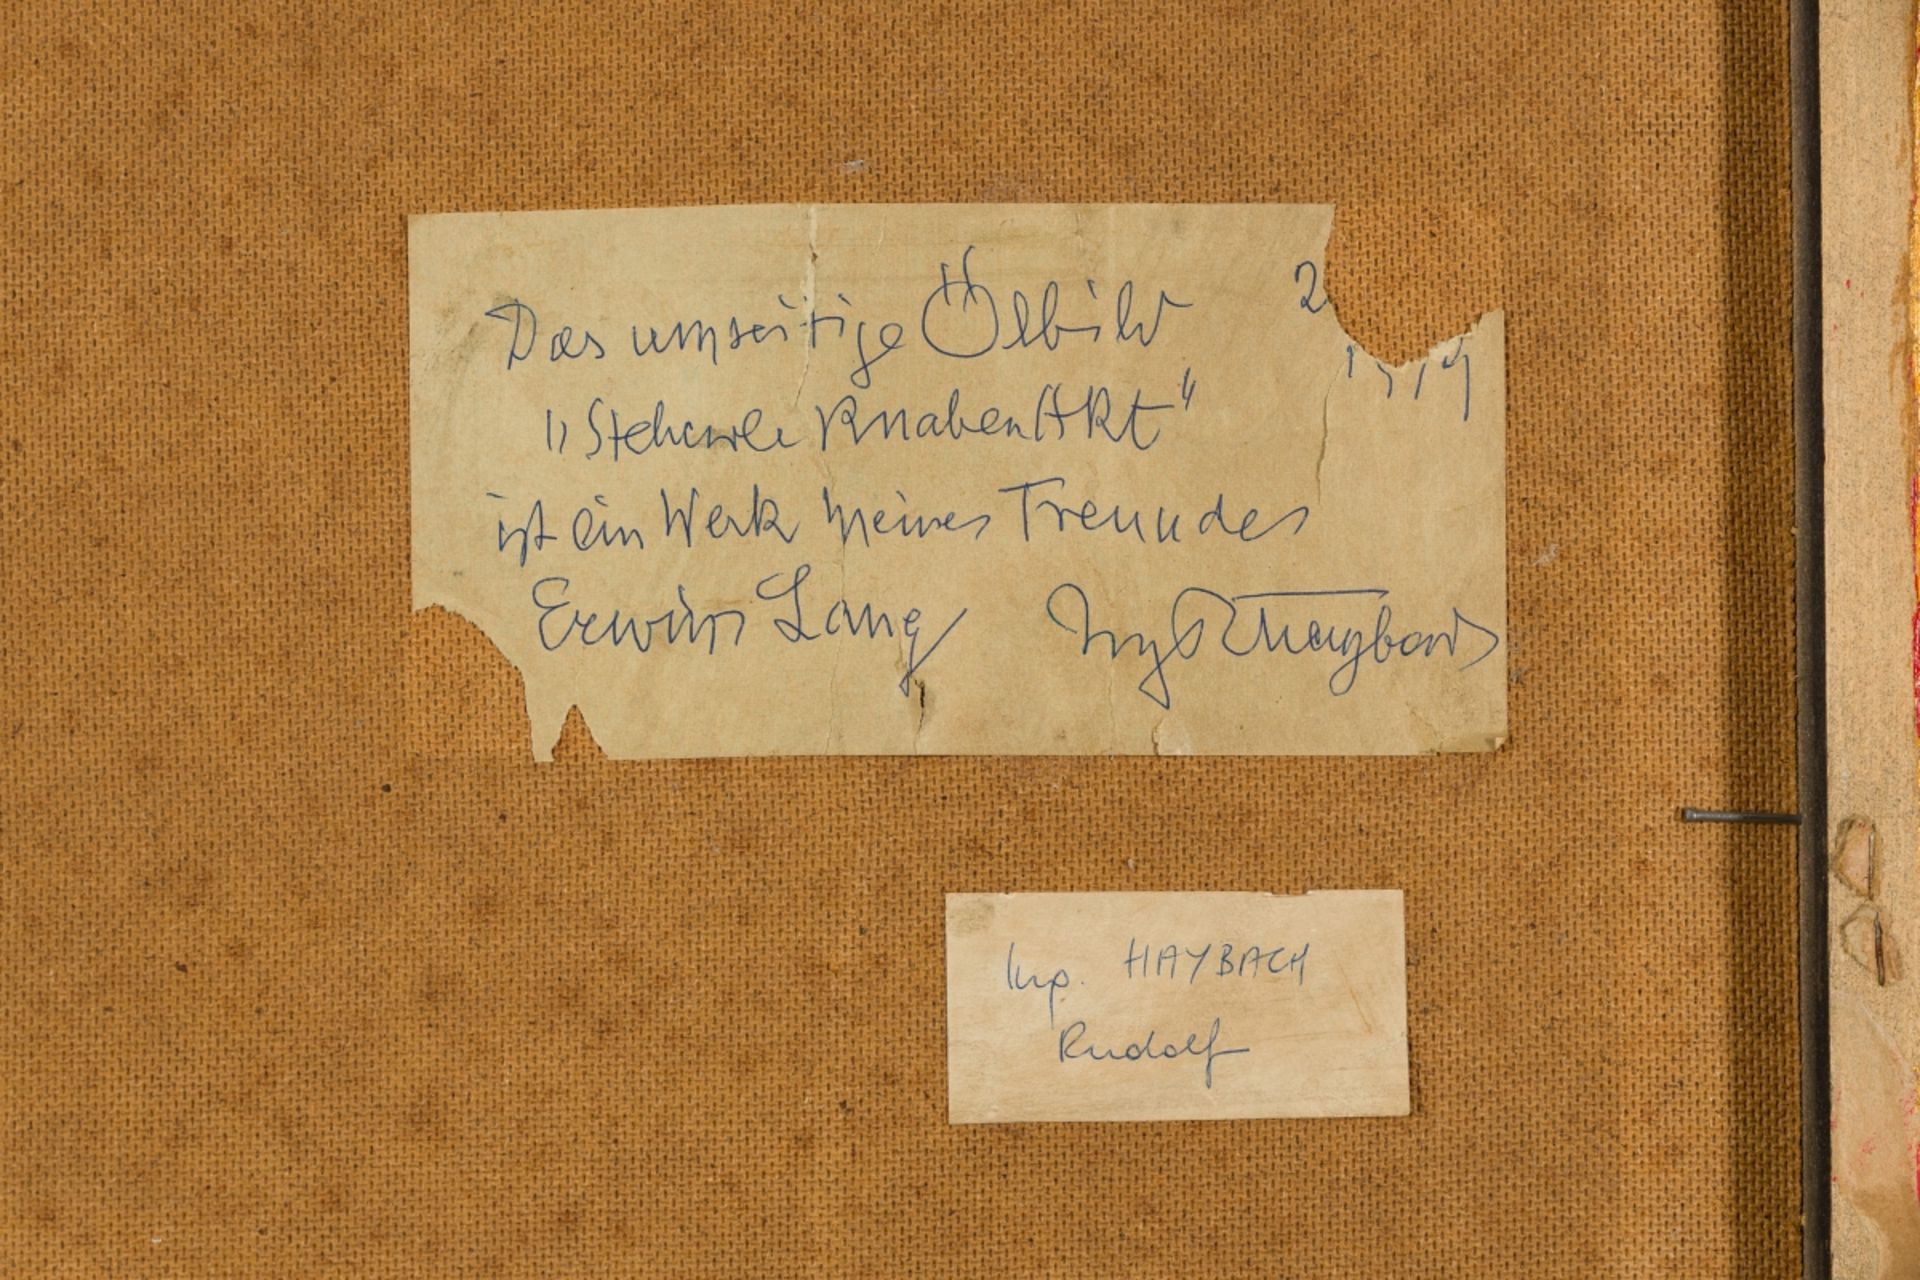 Das umseitige Ölbild 2
„Stehende KnabenAkt"
ist ein Werk meines Freundes
Erwin Lang Ing R Haybach
HAYBACH
Rudolf